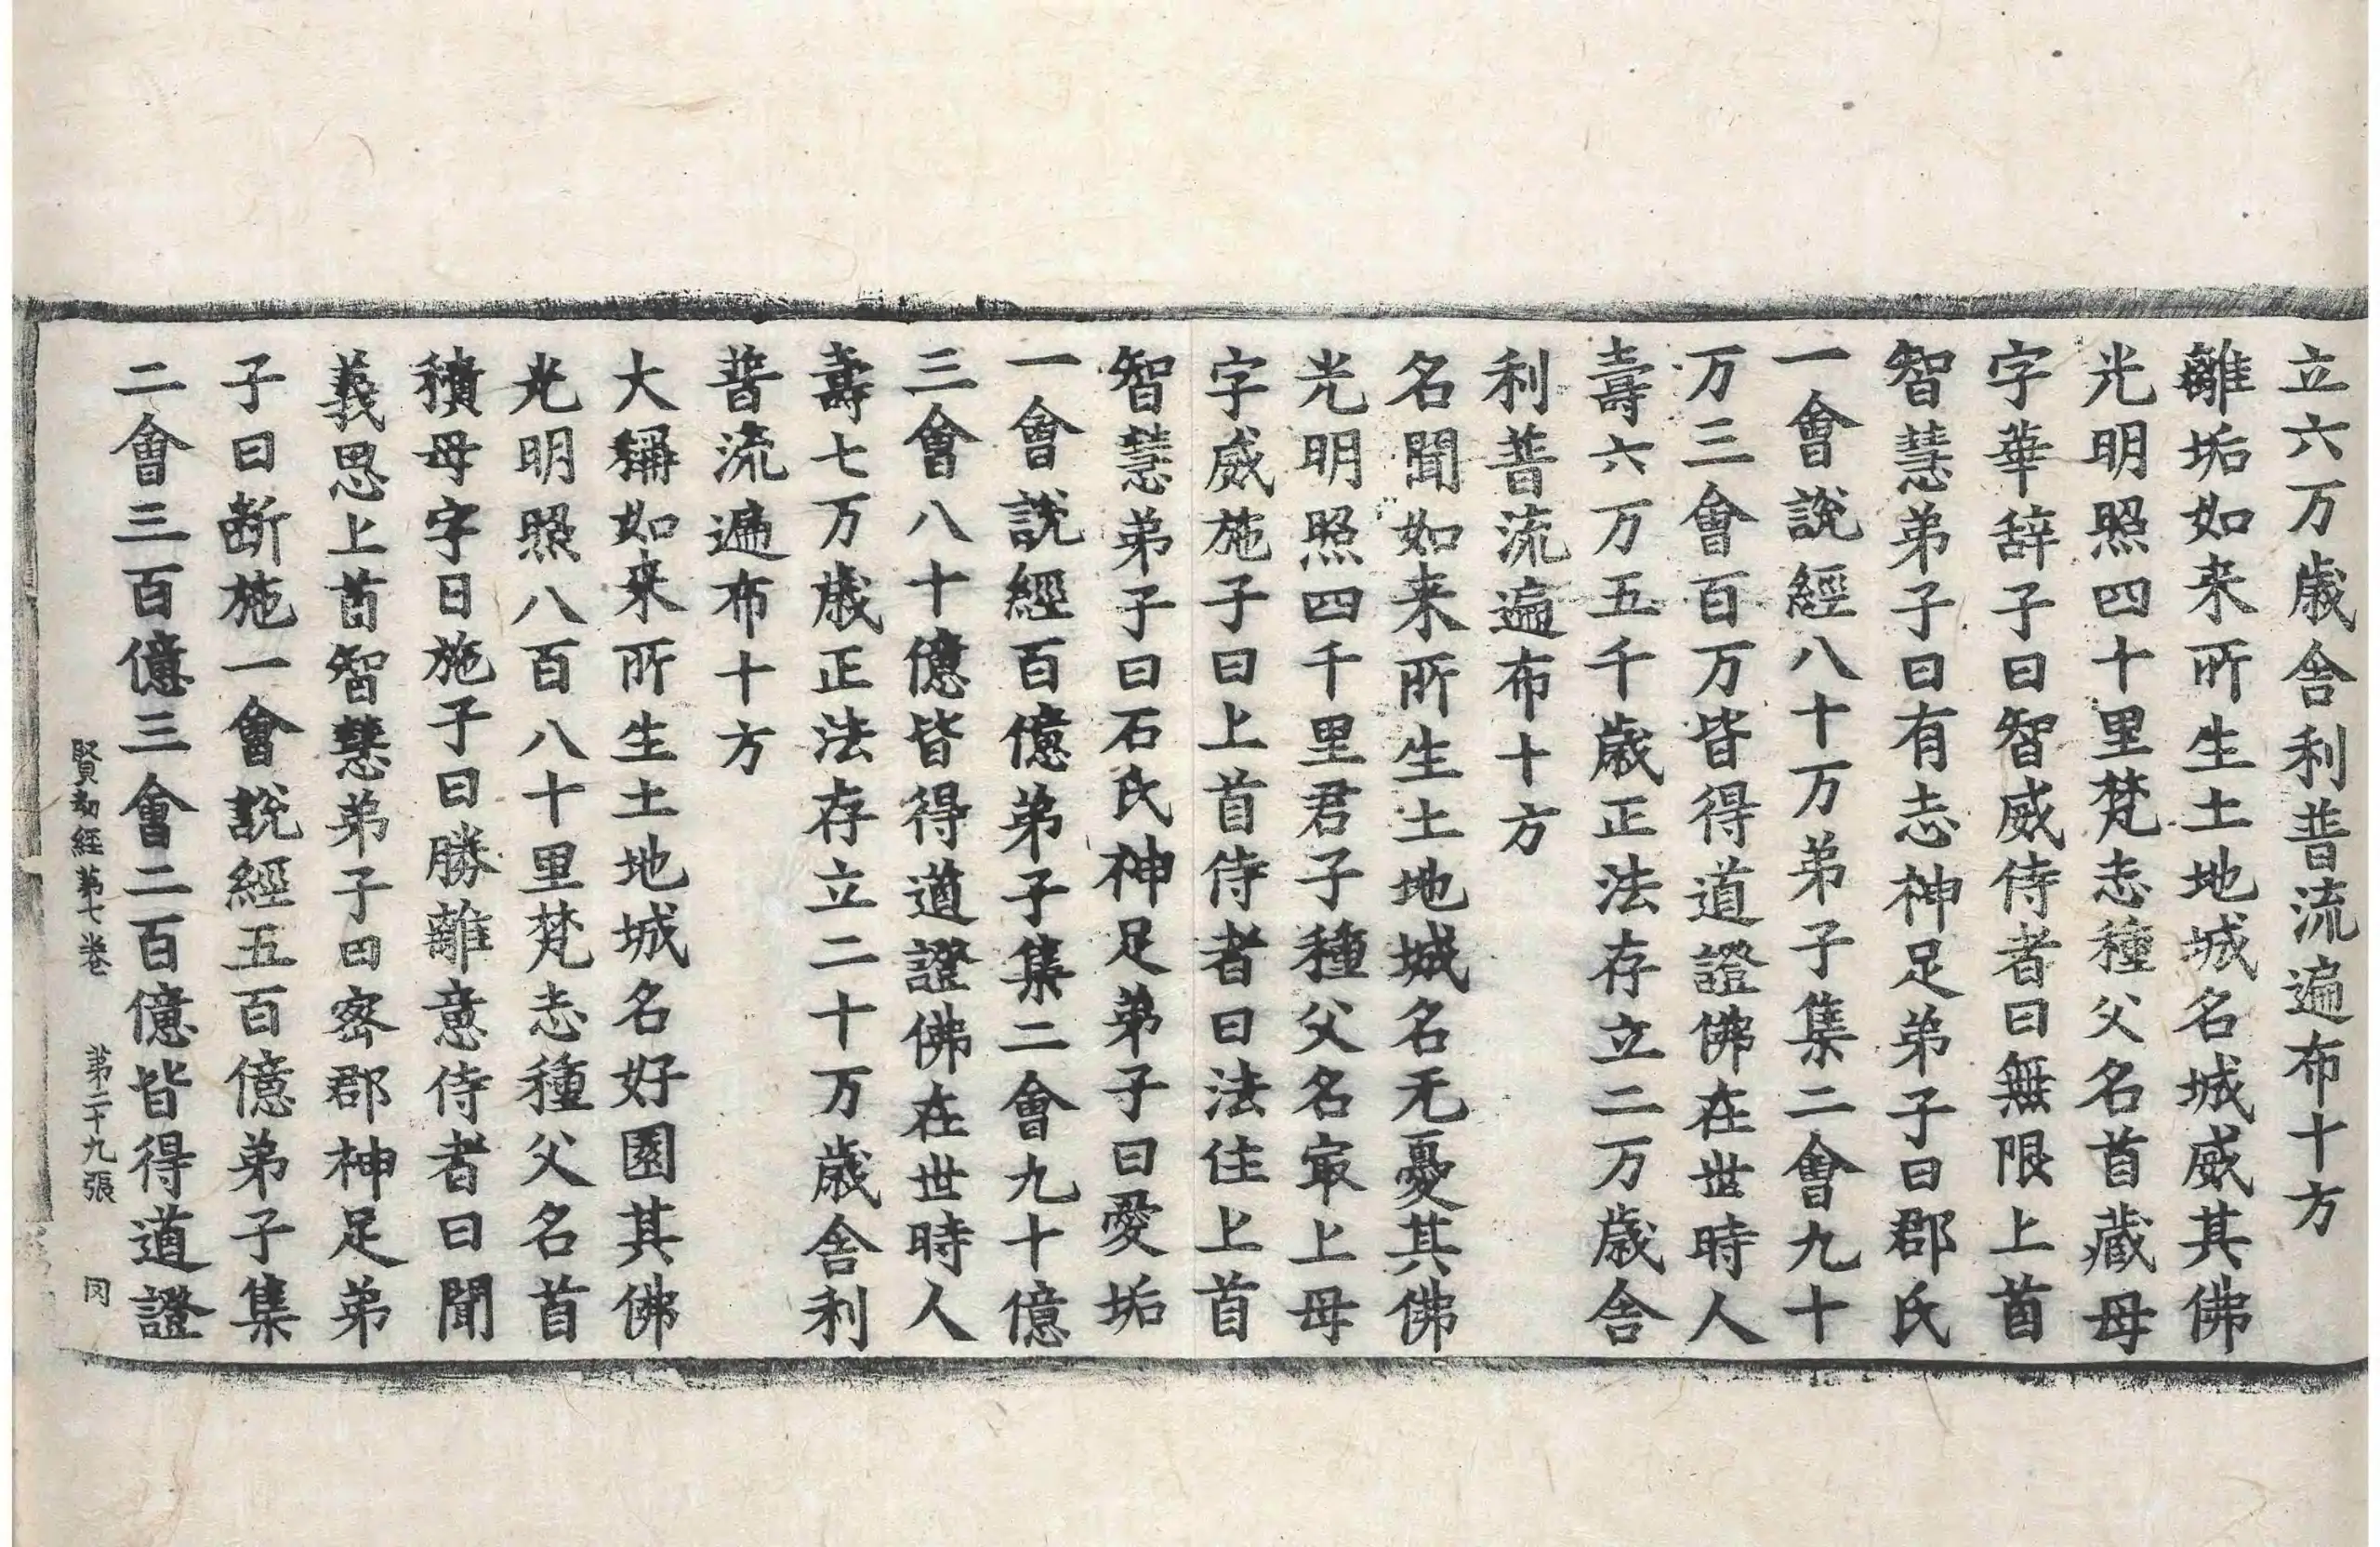 立六万歲舍利普流遍布十方
離垢如来所生土地城名城威其佛
光明照四十里梵志種父名首藏母
字華辞子曰智威侍者曰無限上首
智慧弟子曰有志神足弟子曰郡氏
一會說經八十万弟子集二會九十
万三會百万皆得道證佛在世時人
壽六万五千歲正法存立二万歲舍
利普流遍布十方
名聞如来所生土地城名无憂其佛
光明照四千里君子種父名㝡上母
字威施子曰上首侍者曰法住上首
智慧弟子曰石氏神足弟子曰愛垢
一會說經百億弟子集二會九十億
三會八十億皆得道證佛在世時人
壽七万歲正法存立二十万歲舍利
普流遍布十方
大稱如来所生土地城名好園其佛
光明照八百八十里梵志種父名首
積母字日施子曰勝離意侍者曰聞
義思上首智慧弟子曰密郡神足弟
子曰斷施一會說經五百億弟子集
二會三百億三會二百億皆得道證
賢劫經第七卷 第二十九張 罔